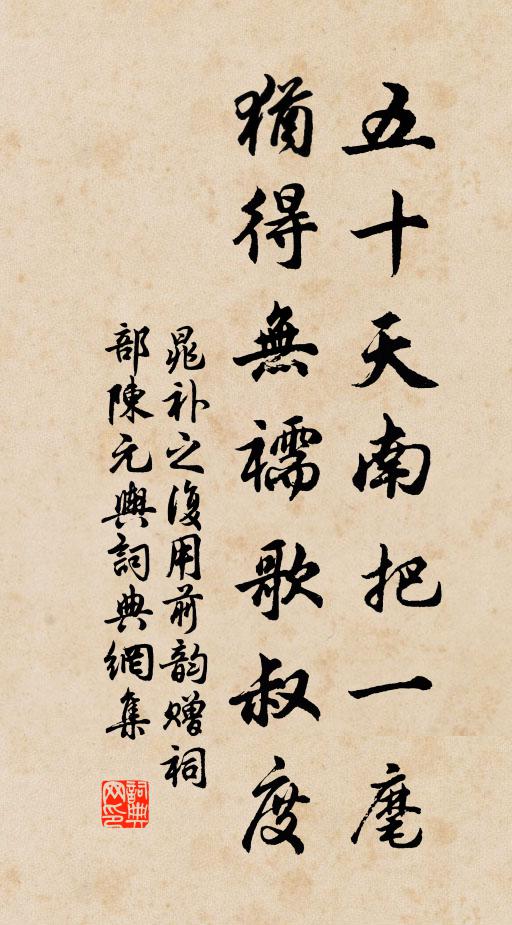 五十天南把一麾
猶得無襦歌叔度
晁补之復用前韵赠祠
部陳元輿詞典網集
詞典网印